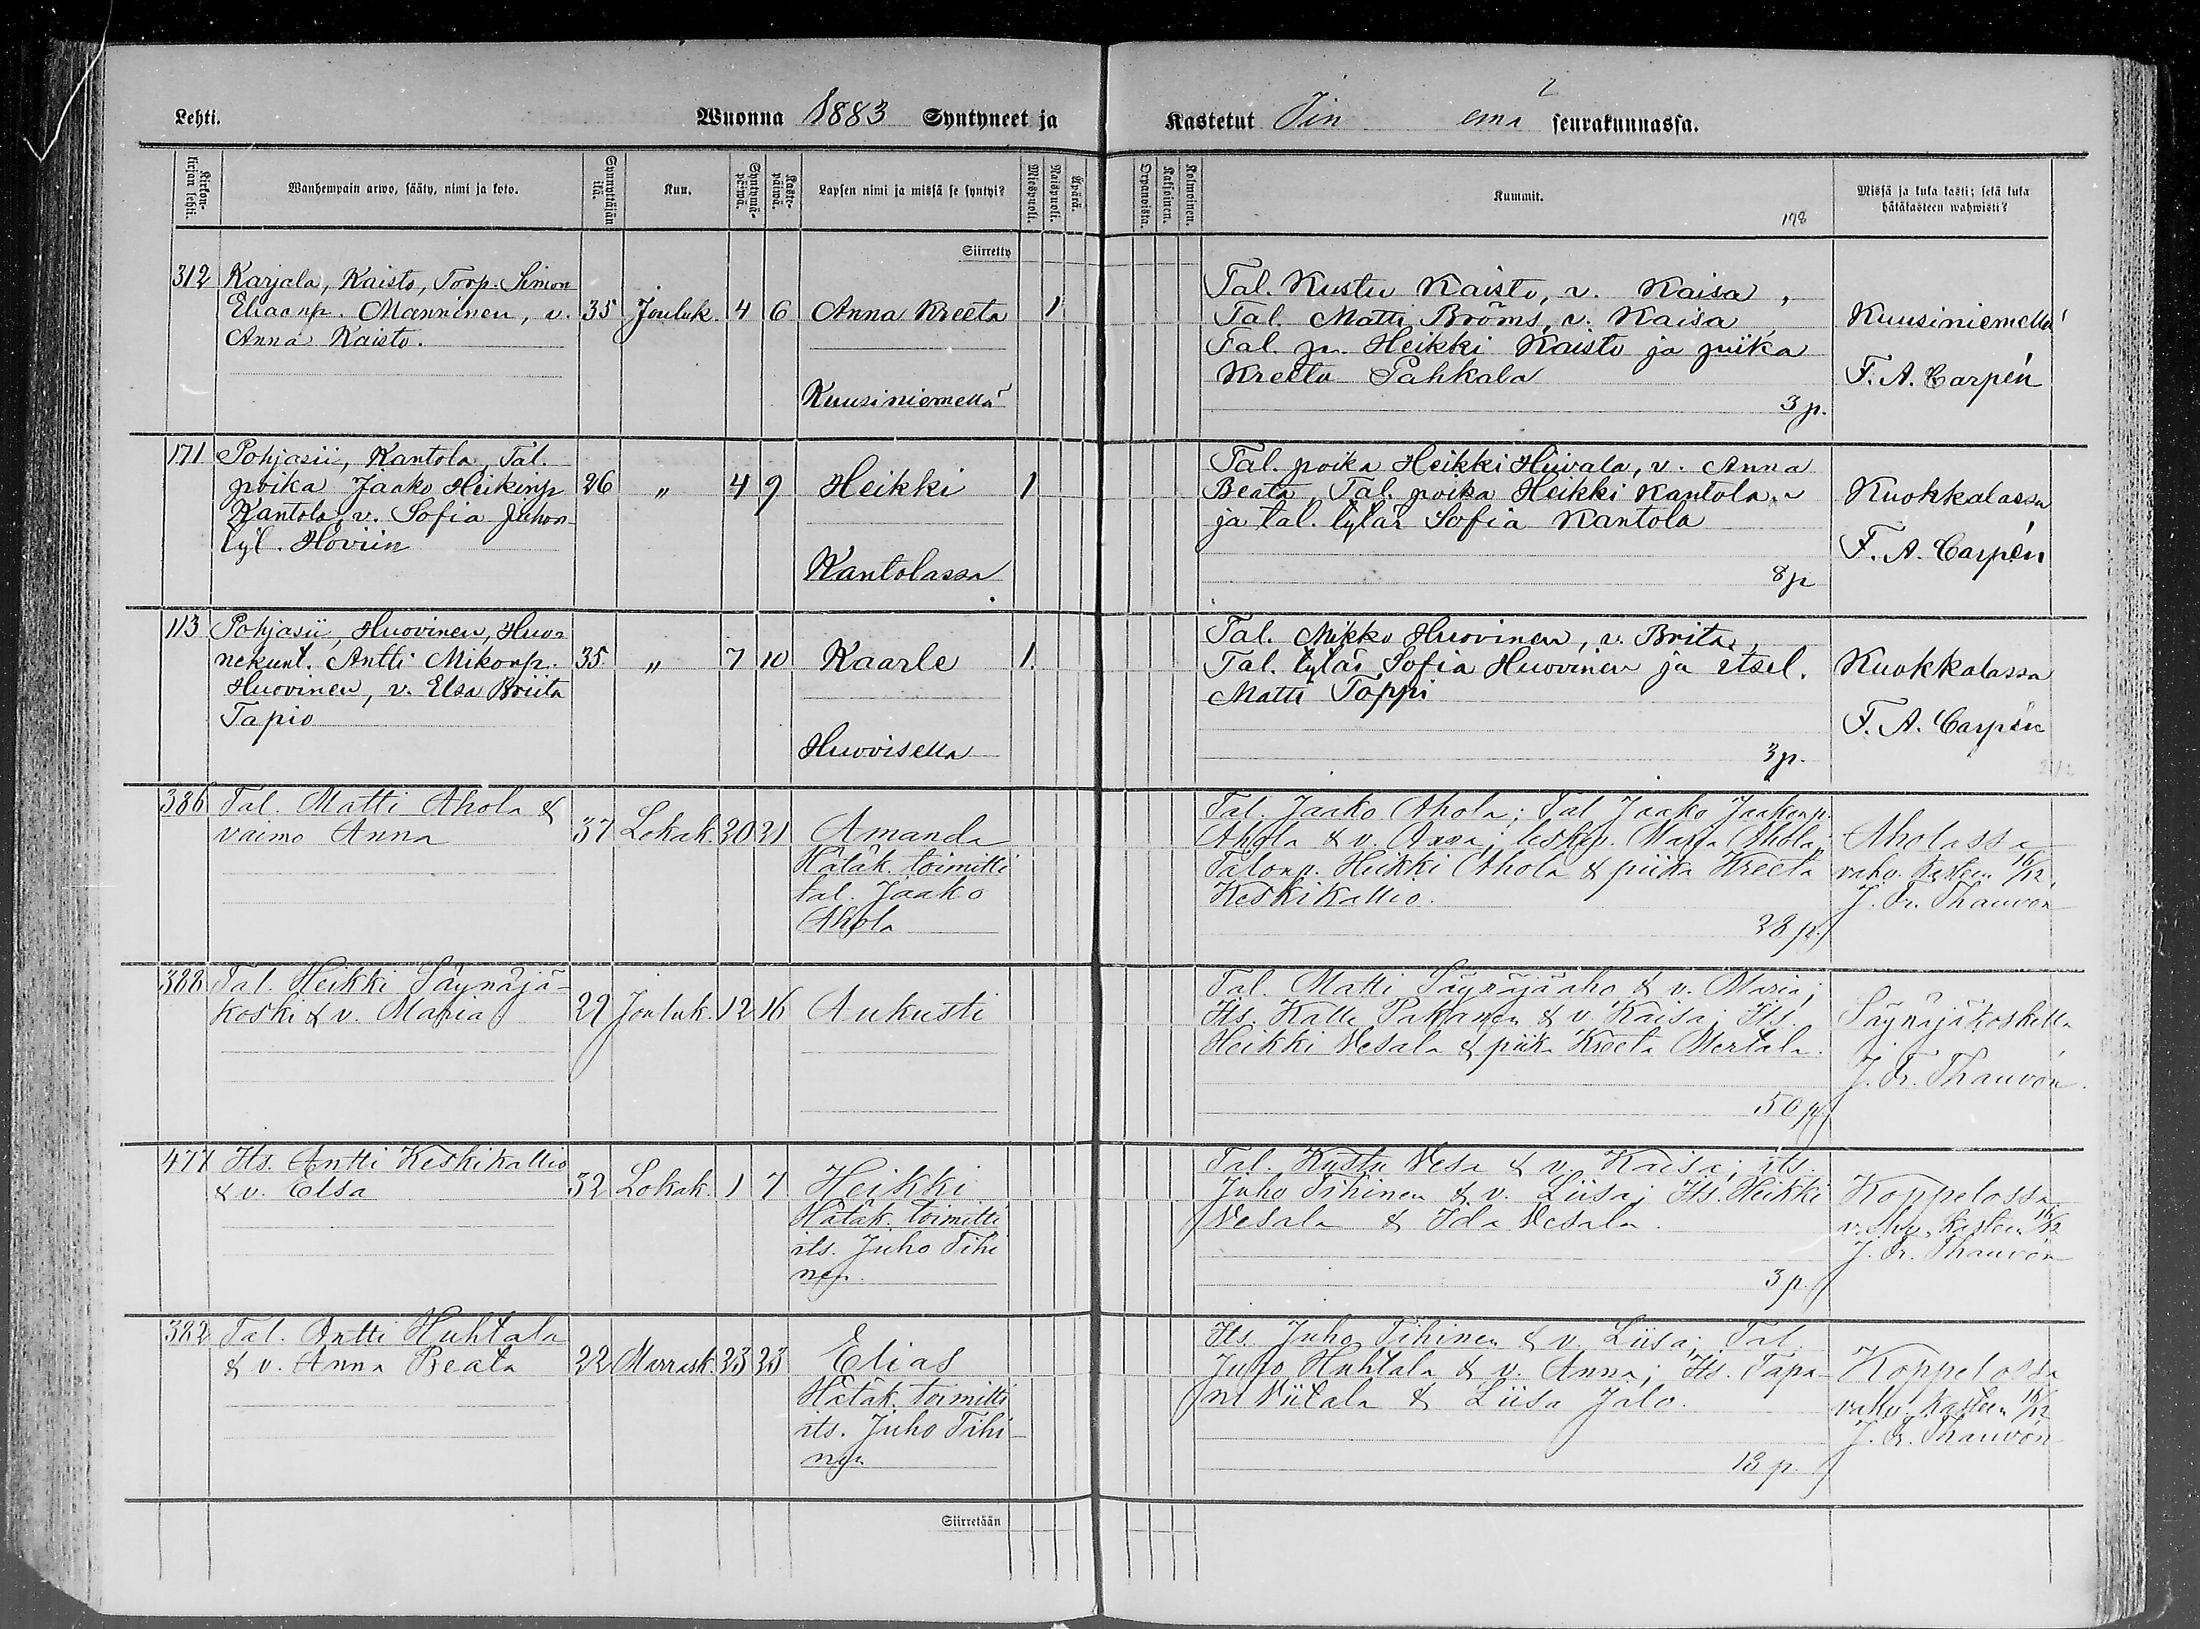 Lehti.
Wuonna 1883 Syntyneet ja
Kastetut Iin emä seurakunnassa.
Kirkonkirjan lehti.
Wanhempain arwo, sääty, nimi ja koto.
Synnyttäjän ikä.
Kuu.
Syntymäpäiwä.
Kastepäiwä.
Lapsen nimi ja missä se syntyi?
Miespuoli.
Naispuoli.
Äpärä.
Kaksoinen.
Kolmoinen.
Kummit.
198
Missä ja kuka kasti; sekä kuka
hätäkasteen wahwisti?
Siirretty
312 Karjala, Kaisto, Torp. Simon
Eliaanp. Manninen, v. 35 Jouluk. 4 6 Anna Kreeta 1
Anna Kaisto.
Kuusiniemellä
Tal. Kustu Kaisto, v. Kaisa,
Tal. Matti Bröms, v. Kaisa
Tal. p. Heikki Kaisto ja piika
Kreeta Pahkala
3 p.
Kuusiniemellä
F. A. Carpén
171 Pohjasii, Kantola, Tal.
poika Jaako Heikinp 26 „ 4 9 Heikki 1
Kantola, v. Sofia Juhon
tyt. Hoviin
Kantolassa
Tal. poika Heikki Hiivala, v. Anna
Beata, Tal. poika Heikki Kantola
ja tal. tytär Sofia Kantola
8 p
Kuokkalassa
F. A. Carpén
113 Pohjasii, Huovinen, Huo-
nekunt. Antti Mikonp. 35 „ 7 10 Kaarle 1
Huovinen, v. Elsa Briita
Tapio
Huovisella
Tal. Mikko Huovinen, v. Brita,
Tal. tytär Sofia Huovinen ja itsel.
Matti Toppi
3 p.
Kuokkalassa
F. A. Carpén
386 Tal. Matti Ahola &
vaimo Anna 37 Lokak. 20 21 Amanda
Hätäk. toimitti
tal. Jaako
Ahola
Tal. Jaako Ahola; Tal Jaako Jaakonp.
Ahola & v. Anna; leskep. Maria Ahola,
Talonp. Heikki Ahola & piika Kreeta
Keskikallio.
28 p.
Aholassa
vahv. kasteen 16/12
J. Fr. Thauvón
388 Tal. Heikki Säynäjä-
koski & v. Maria 22 Jouluk. 12 16 Aukusti
Tal. Matti Säynäjäaho & v. Maria;
Its. Kalle Pakanen & v. Kaisa; Its.
Heikki Vesala & piika Kreeta Mertala.
50 p.
Säynäjäkoskella
J. Fr. Thauvón.
477 Its. Antti Keskikallio
& v. Elsa 32 Lokak. 1 7 Heikki
Hätäk. toimitti
its. Juho Tihi
nen.
Tal. Kustu Vesa & v. Kaisa; its.
Juho Tihinen & v. Liisa; Its. Heikki
Vesala & Ida Vesala.
3 p.
Koppelossa
vahv. kasteen 16/12
J. Fr. Thauvón
382 Tal. Antti Huhtala
& v. Anna Beata 22 Marrask. 23 23 Elias
Hätäk. toimitti
its. Juho Tihi-
nen
Its. Juho Tihinen & v. Liisa; Tal
Juho Huhtala & v. Anna; Its. Tapa-
ni Viitala & Liisa Jalo.
13 p.
Koppelossa
vahv. kasteen 16/12
J. Fr. Thauvón
Siirretään